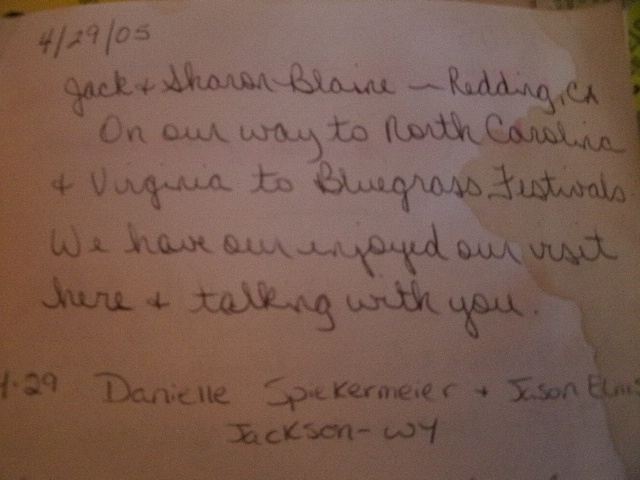 4/29/05
Jack & Sharon Blaine — Redding, CA
On our way to North Carolina
& Virginia to Bluegrass Festivals.
We have our enjoyed our visit
here & talking with you.
4-29 Danielle Spekermeier + Jason
Jackson - WY